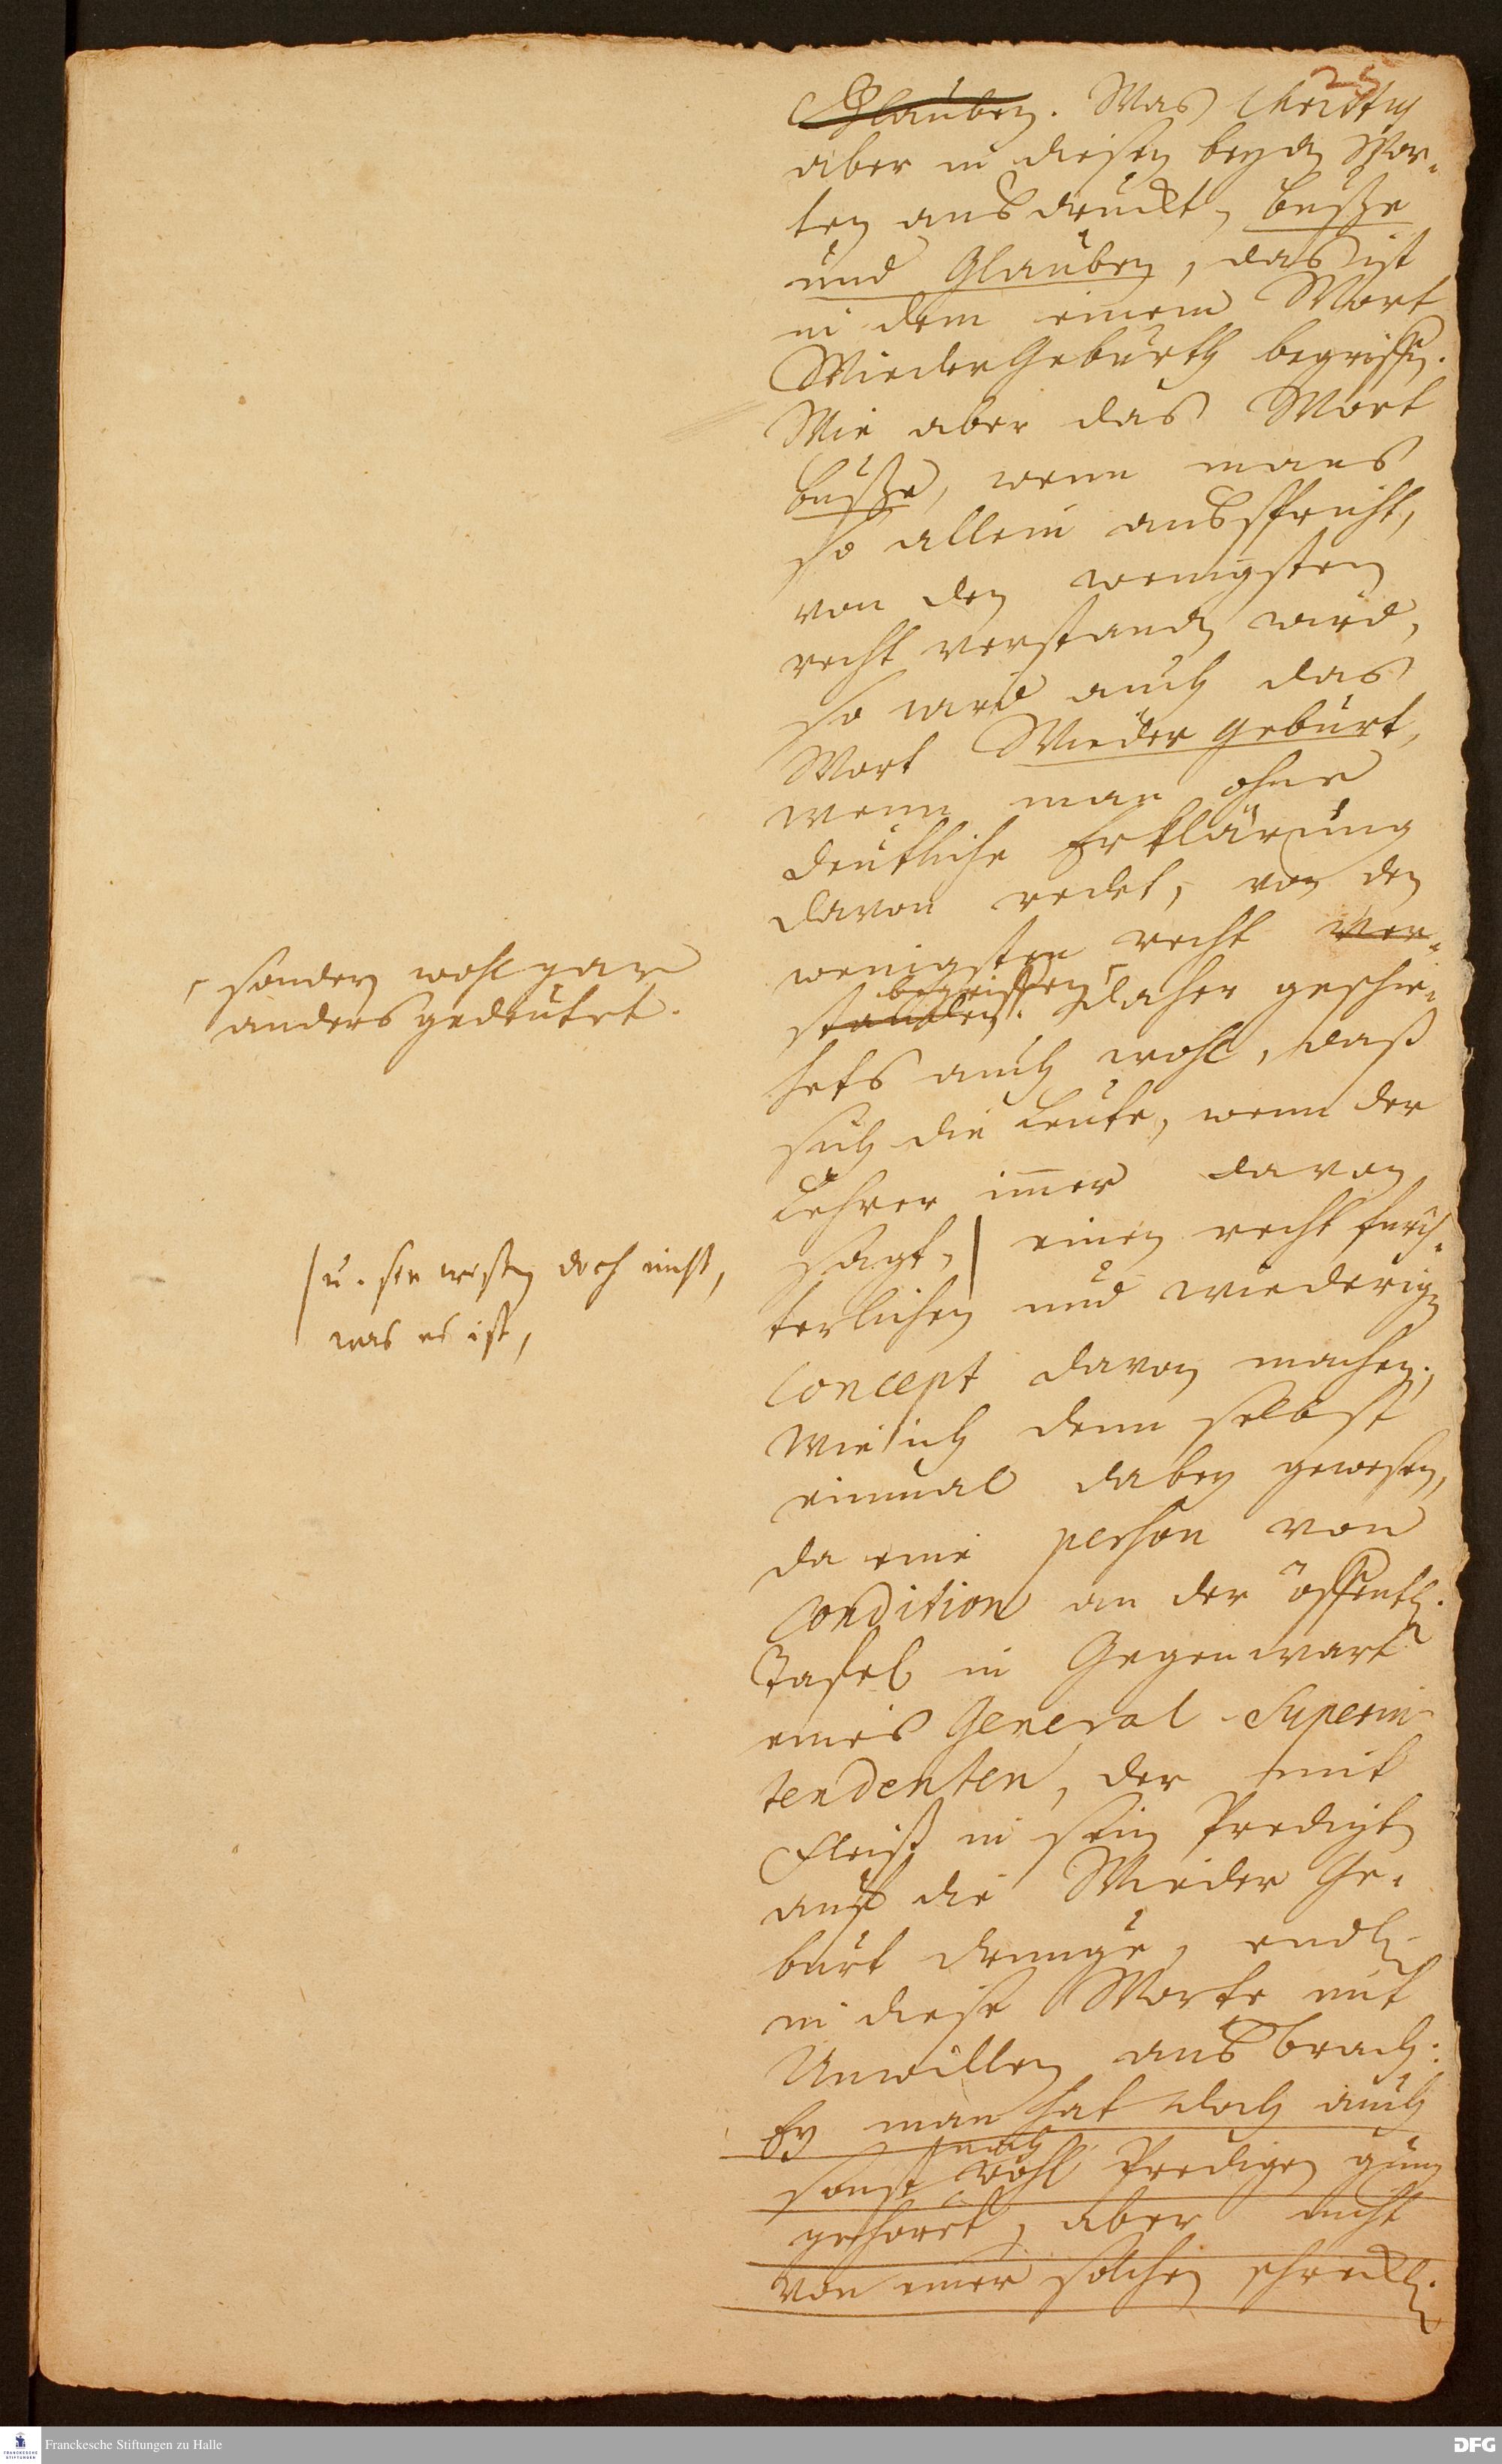 25
Glauben. Was Christus
aber in diesen beyden Wor-
ten ausdruckt, busze
und Glauben, das ist
in dem einem Wort
WiederGeburth begriffen.
Wie aber das Wort
busze, wenn mans
so allein ausspricht,
von den wenigsten
recht verstanden wird,
so wird auch das
Wort Wieder geburt,
wenn man ohne
deutliche Erklärung
davon redet, von den
wenigsten recht ver-
standen. begriffen Daher geschie-
sondern wohl gar
anders gedeutet.
hets auch wohl, daß
sich die Leute, wenn der
Lehrer immer davon
sagt, einen recht fürch-
u. sie wißen doch nicht,
was es ist,
terlichen und wiederigen
concept davon machen;
Wie ich denn selbst
einmal dabey gewesen,
da eine person von
condition an der öffentl.
Tafel in Gegenwart
eines General-Superin
tendenten, der mit
Fleiß in sein Predigten
auf die Wieder Ge-
burt drunge, endl.
in diese Worte mit
Unwillen ausbrach:
Ey man hat doch auch
sonst wohl Predigen
gehöret, aber nicht
von einer solchen schreckl.
Franckesche Stiftungen zu Halle
DFG